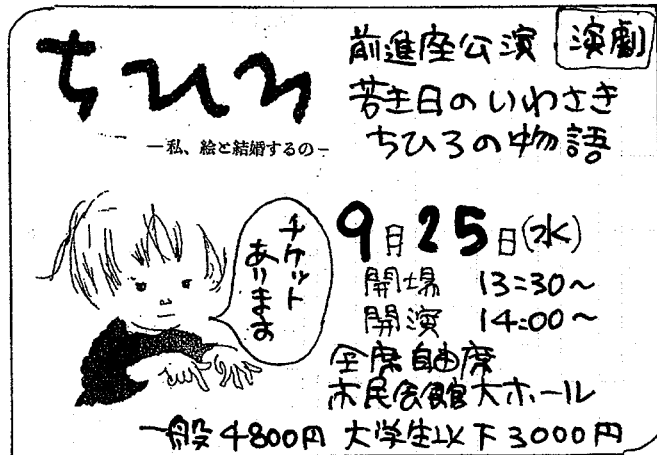 ちひろ
―私、絵と結婚するの―
前進座公演 演劇
若き日のいわさき
ちひろの物語
チケット
あります
9月25日(水)
開場 13:30~
開演 14:00~
全席自由席
市民会館大ホール
一般4800円 大学生以下3000円